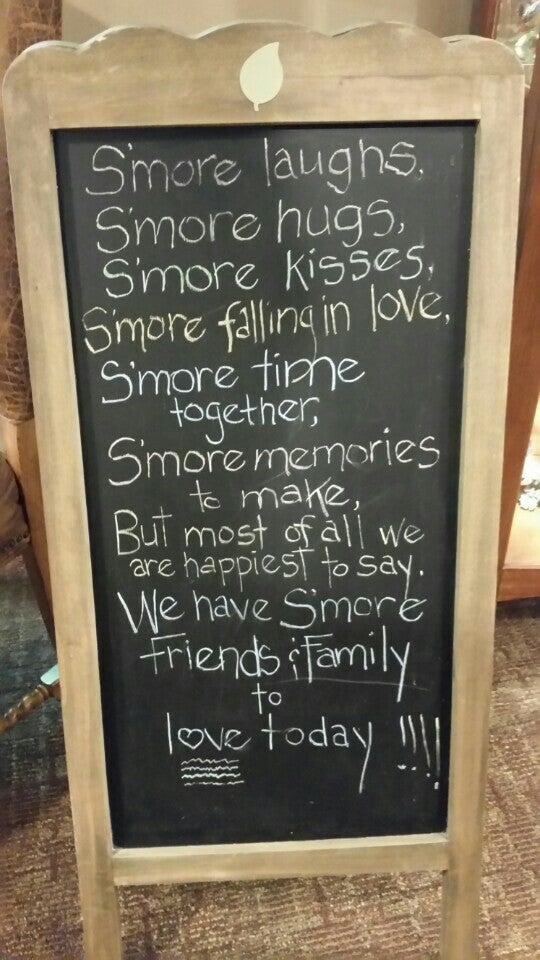 S'more laughs,
S'more hugs,
S'more kisses,
S'more falling in love,
S'more time
together,
S'more memories
to make,
But most of all we
are happiest to say.
We have S'more
Friends & Family
to
love today !!!!